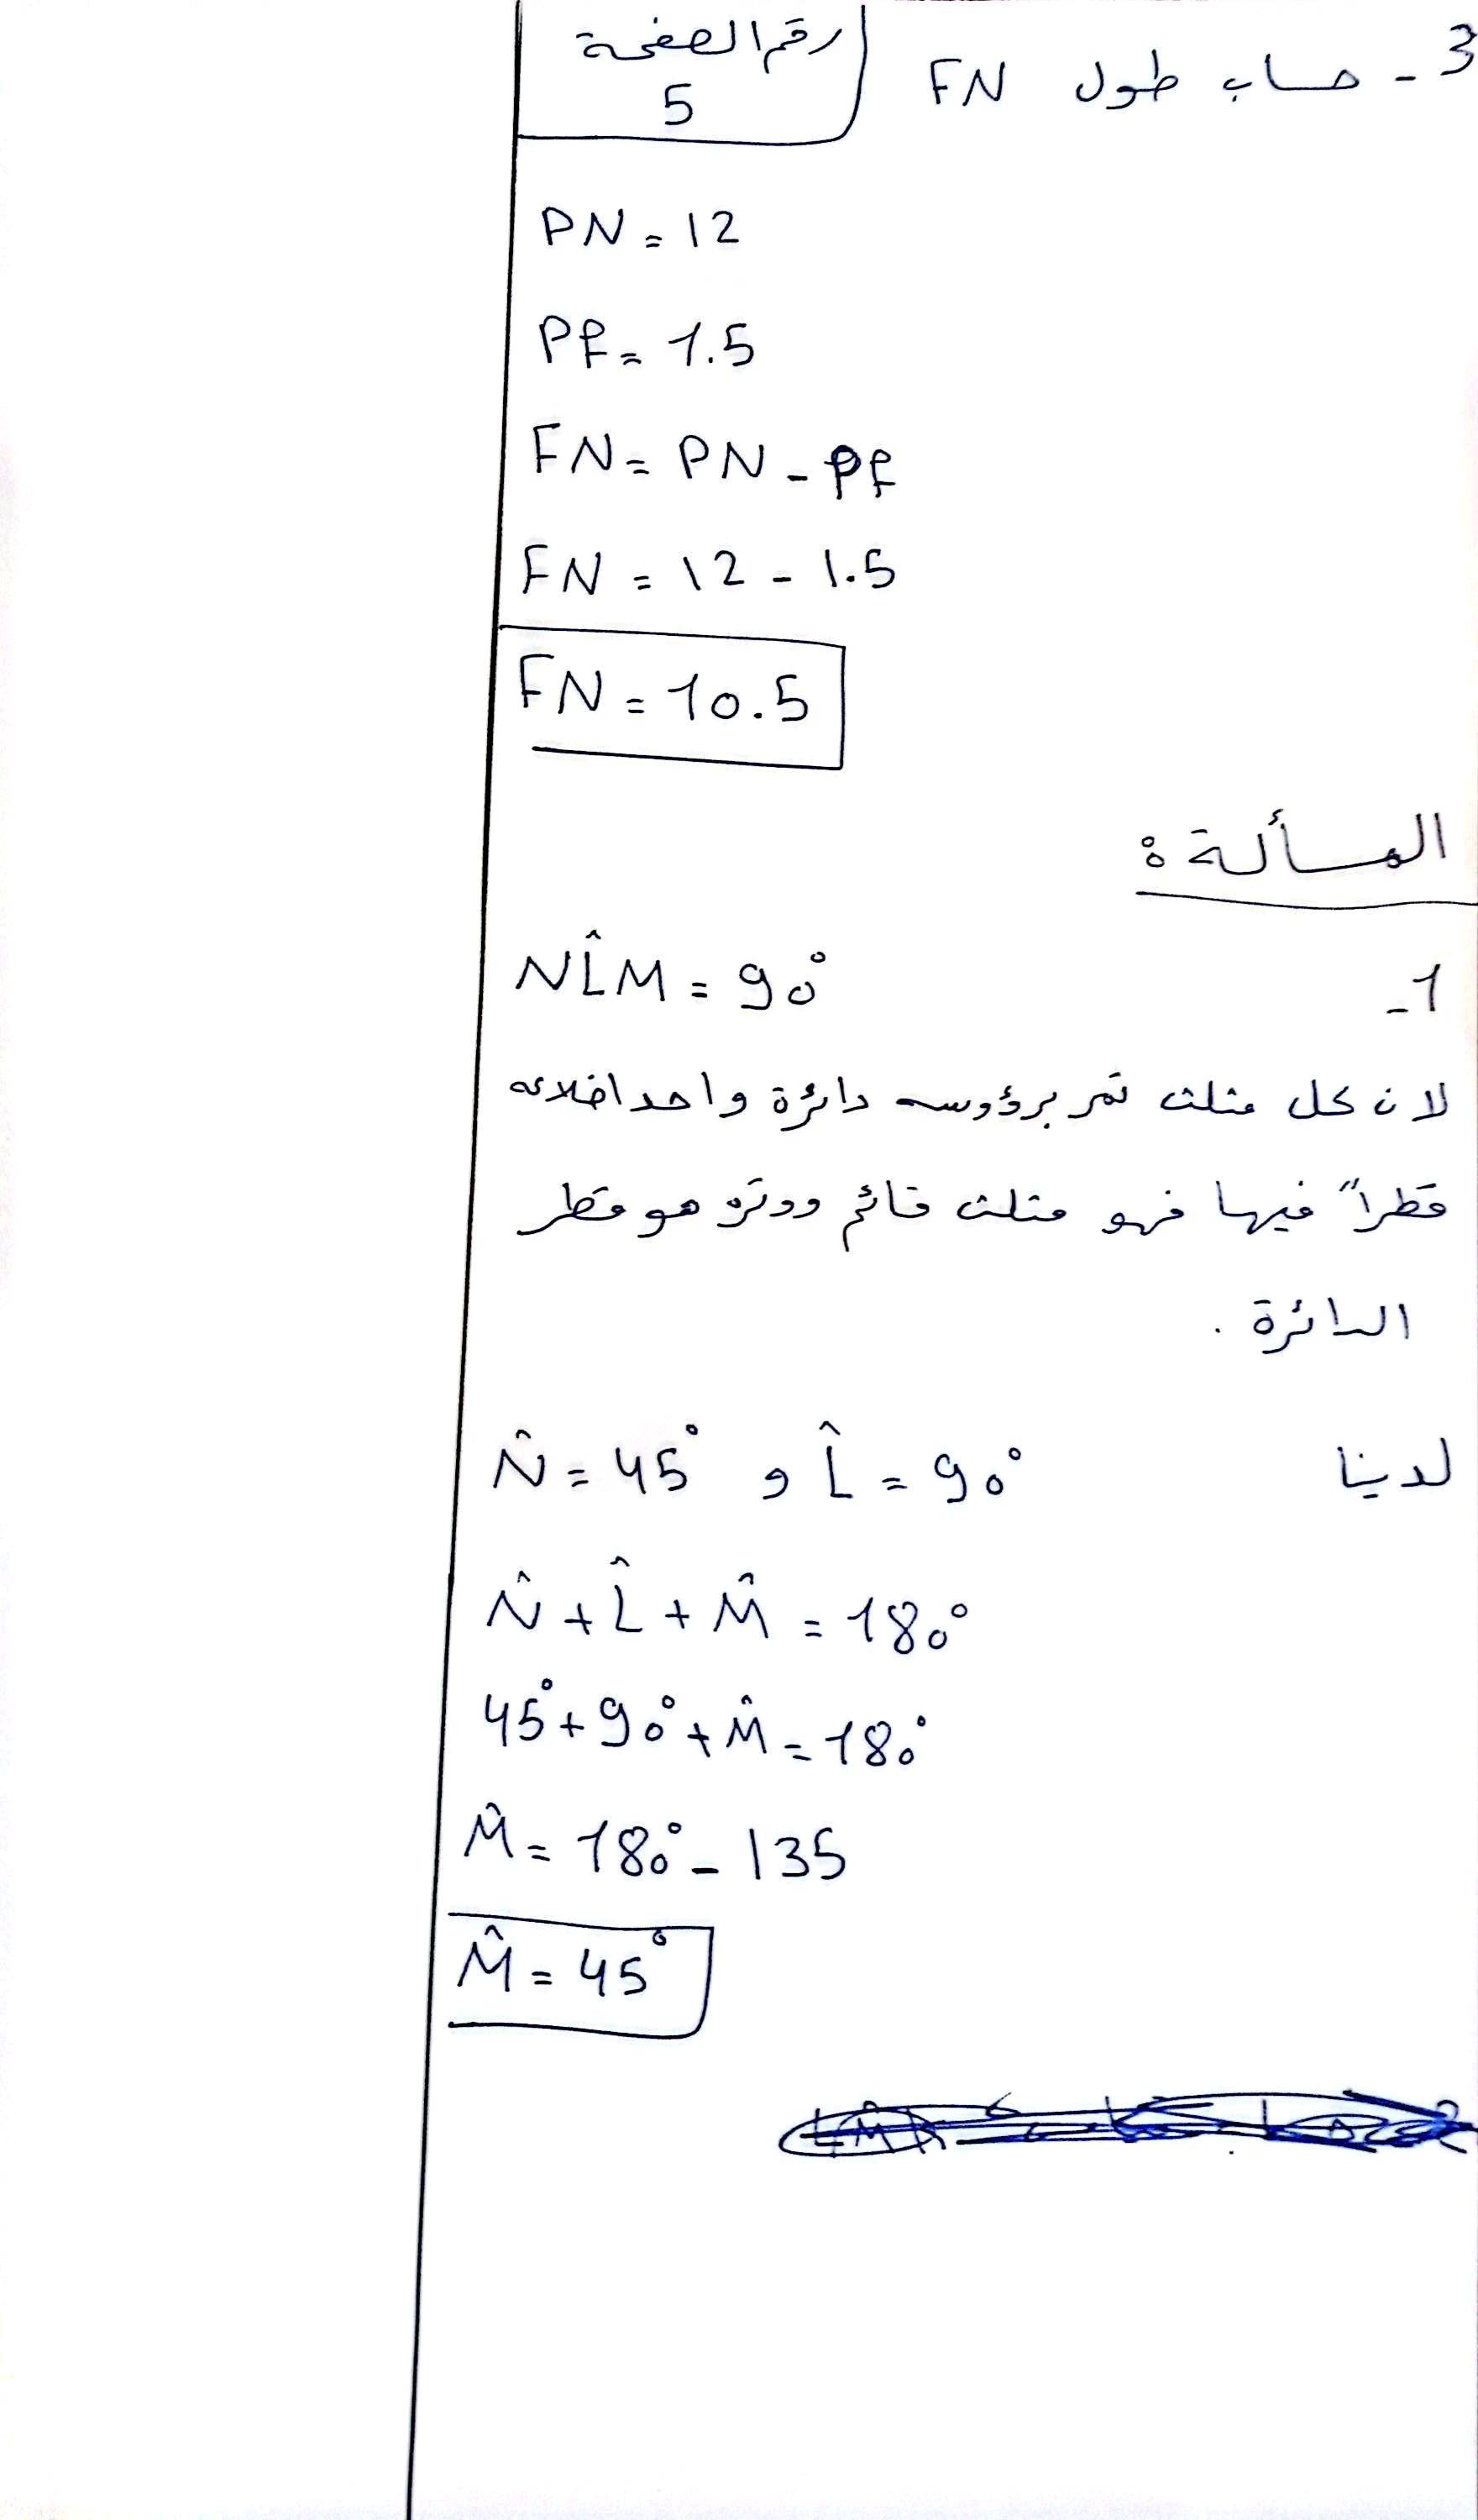 3 - حساب طول FN
رقم الصفحة
5
PN = 12
PF = 1.5
FN = PN - PF
FN = 12 - 1.5
FN = 10.5
المسألة :
1 - NL̂M = 90°
لان كل مثلث تمر برؤوسه دائرة واحد اضلاعه
قطراً فيها فهو مثلث قائم ووتره هو قطر
الدائرة .
لدينا L̂ = 90° و N̂ = 45°
N̂ + L̂ + M̂ = 180°
45° + 90° + M̂ = 180°
M̂ = 180° - 135
M̂ = 45°